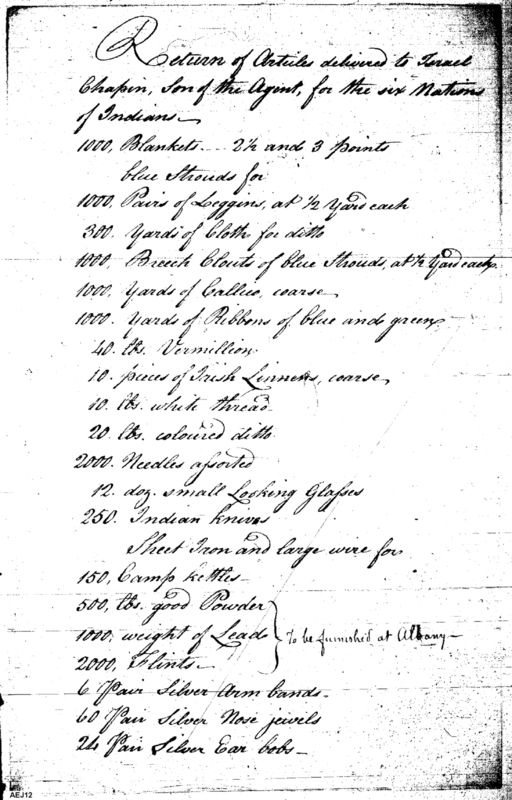 Return of Articles delivered to Israel
Chapin, Son of the Agent, for the six Nations
of Indians
1000, Blankets... 2½ and 3 points
blue Strouds for
1000, Pairs of Leggins, at ½ Yard each
300. Yards of Cloth for ditto
1000, Breech Clouts of blue Strouds, at ½ Yard each
1000, Yards of Callico, coarse
1000. Yards of Ribbons of blue and green
40. lbs. Vermillion
10. pieces of Irish Linnens, coarse
10. lbs. white thread
20. lbs. coloured ditto
2000. Needles assorted
12. doz. small Looking Glasses
250. Indian knives
Sheet Iron and large wire for
150, Camp kettles
500, lbs. good Powder
1000, weight of Lead
To be furnished at Albany
2000, Flints
6 Pair Silver Arm bands
60 Pair Silver Nose jewels
24 Pair Silver Ear bobs
AEJ12